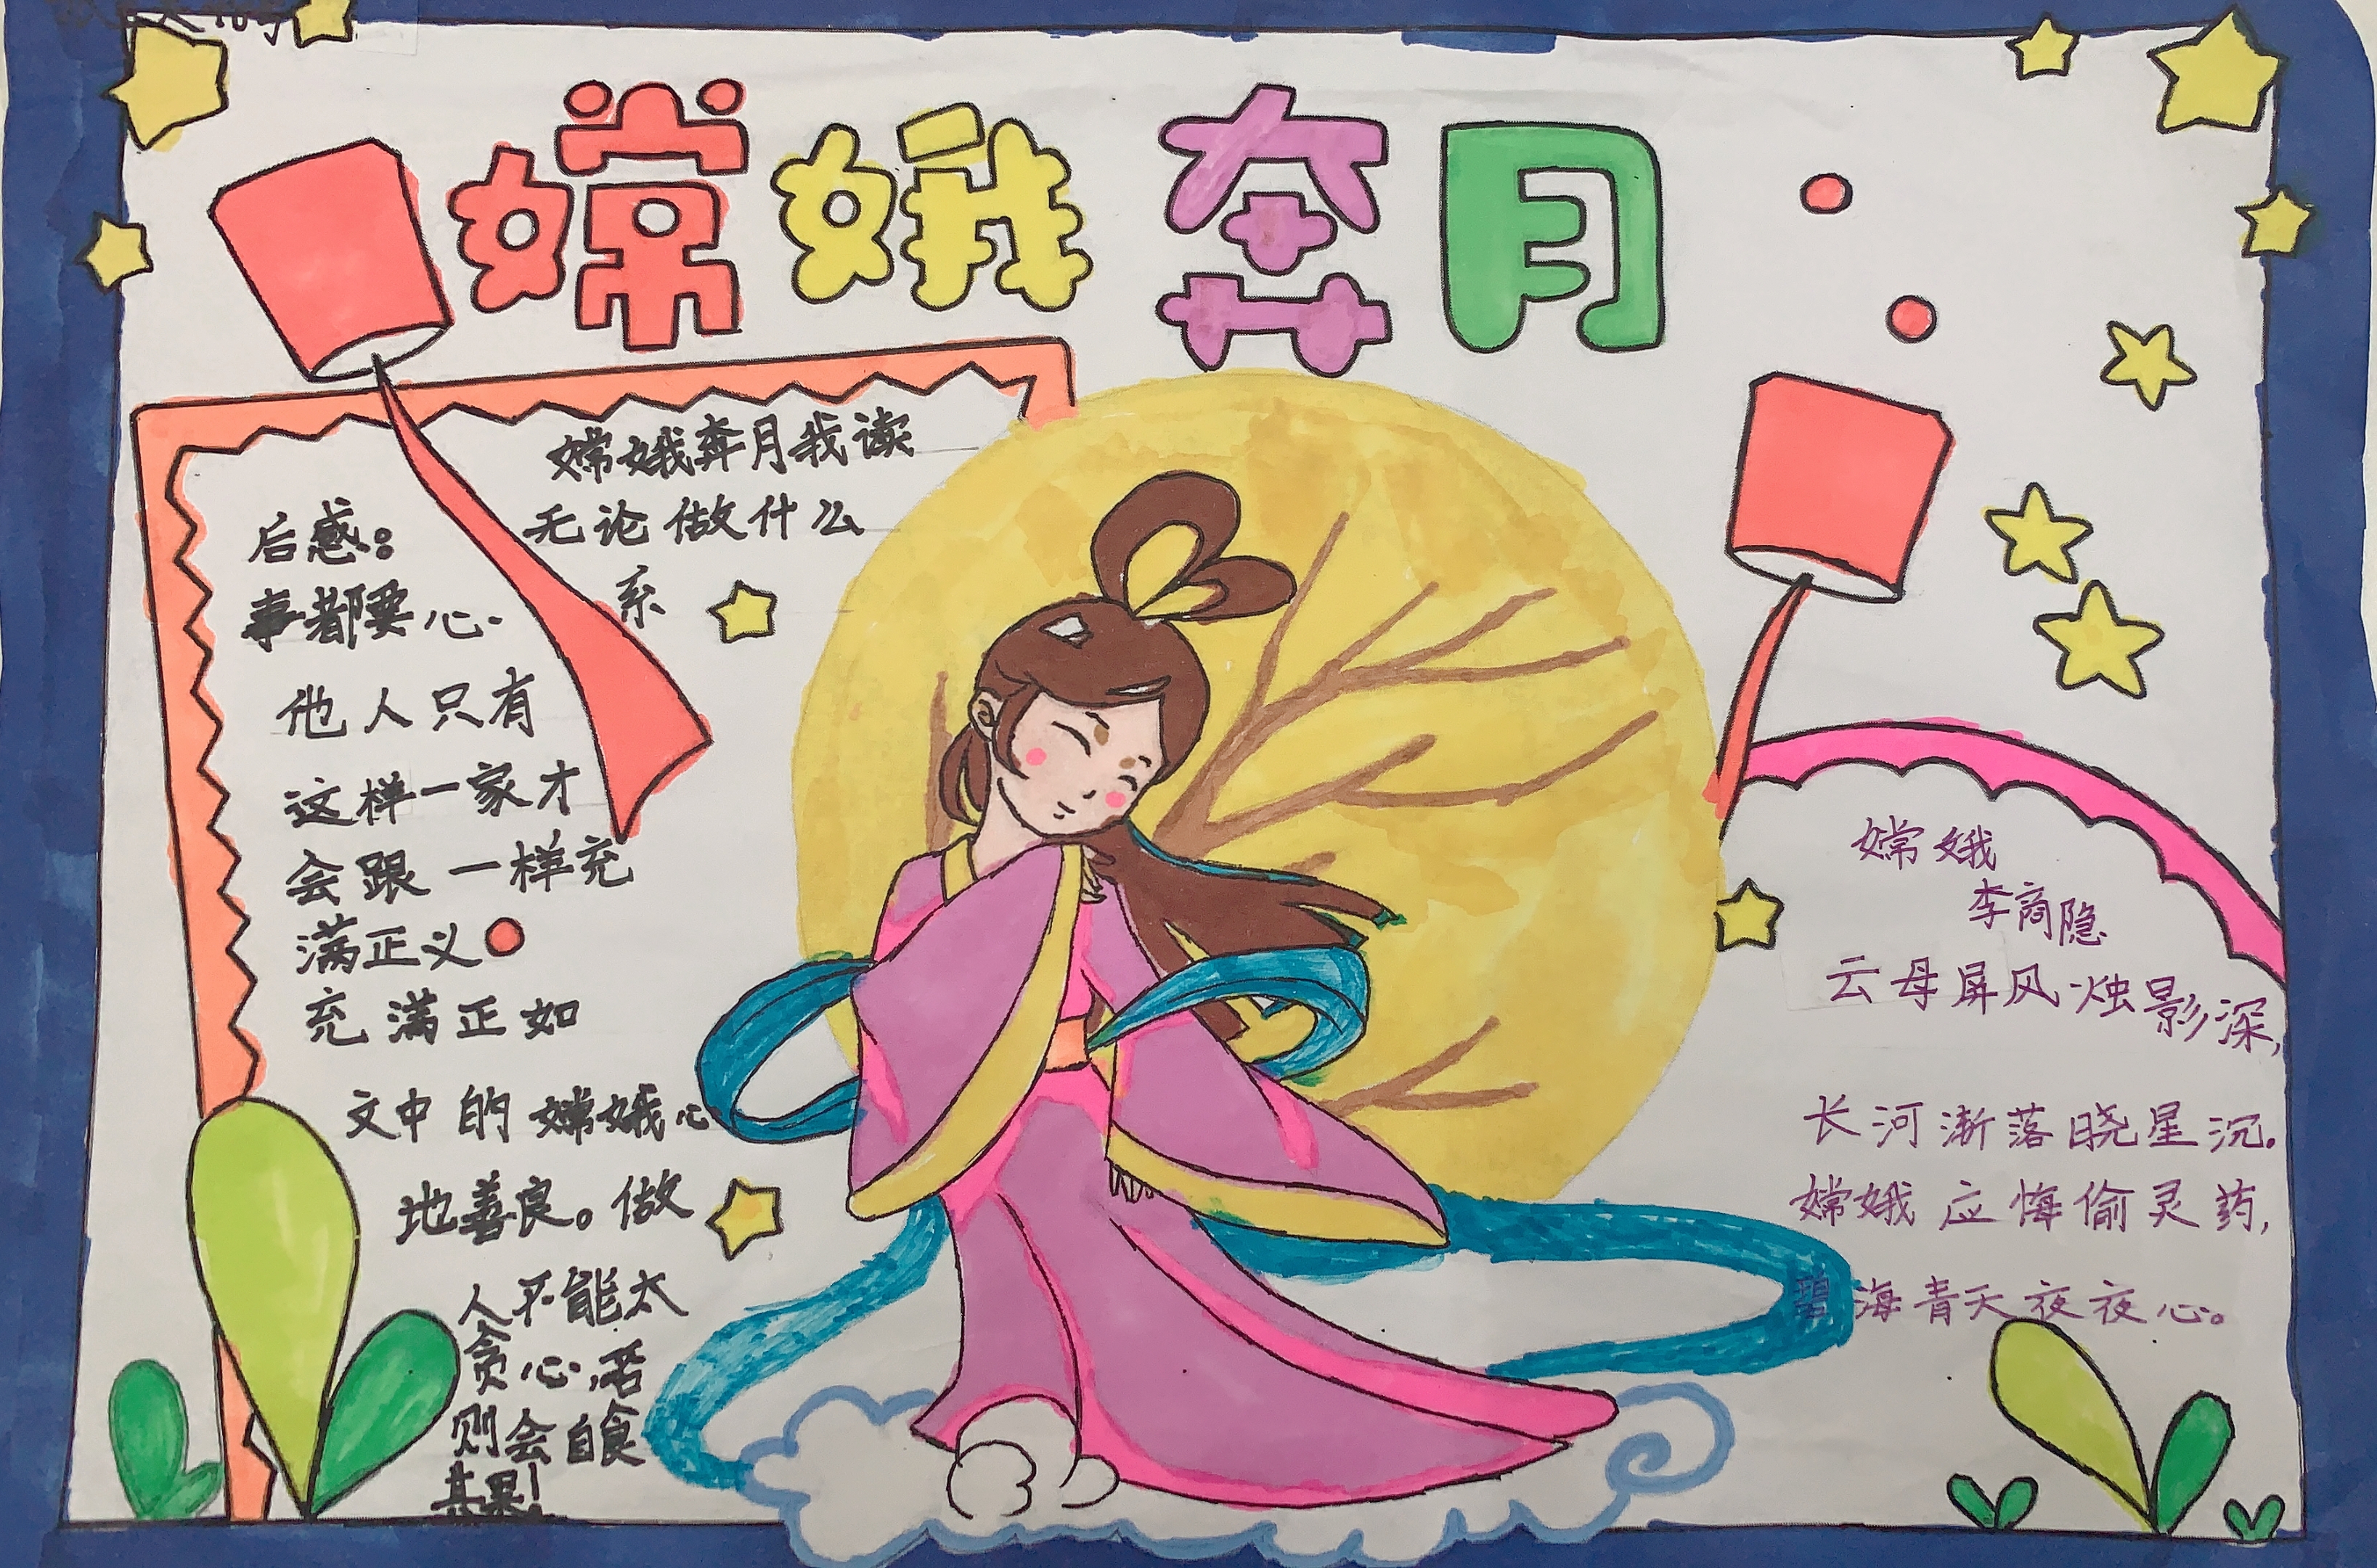 嫦娥奔月
嫦娥奔月我读
后感：
无论做什么
事都要心
系
他人只有
这样一家才
会跟一样充
满正义
充满正如
文中的嫦娥心
地善良。做
人不能太
贪心，否
则会自食
其果！
嫦娥
李商隐
云母屏风烛影深，
长河渐落晓星沉。
嫦娥应悔偷灵药，
碧海青天夜夜心。